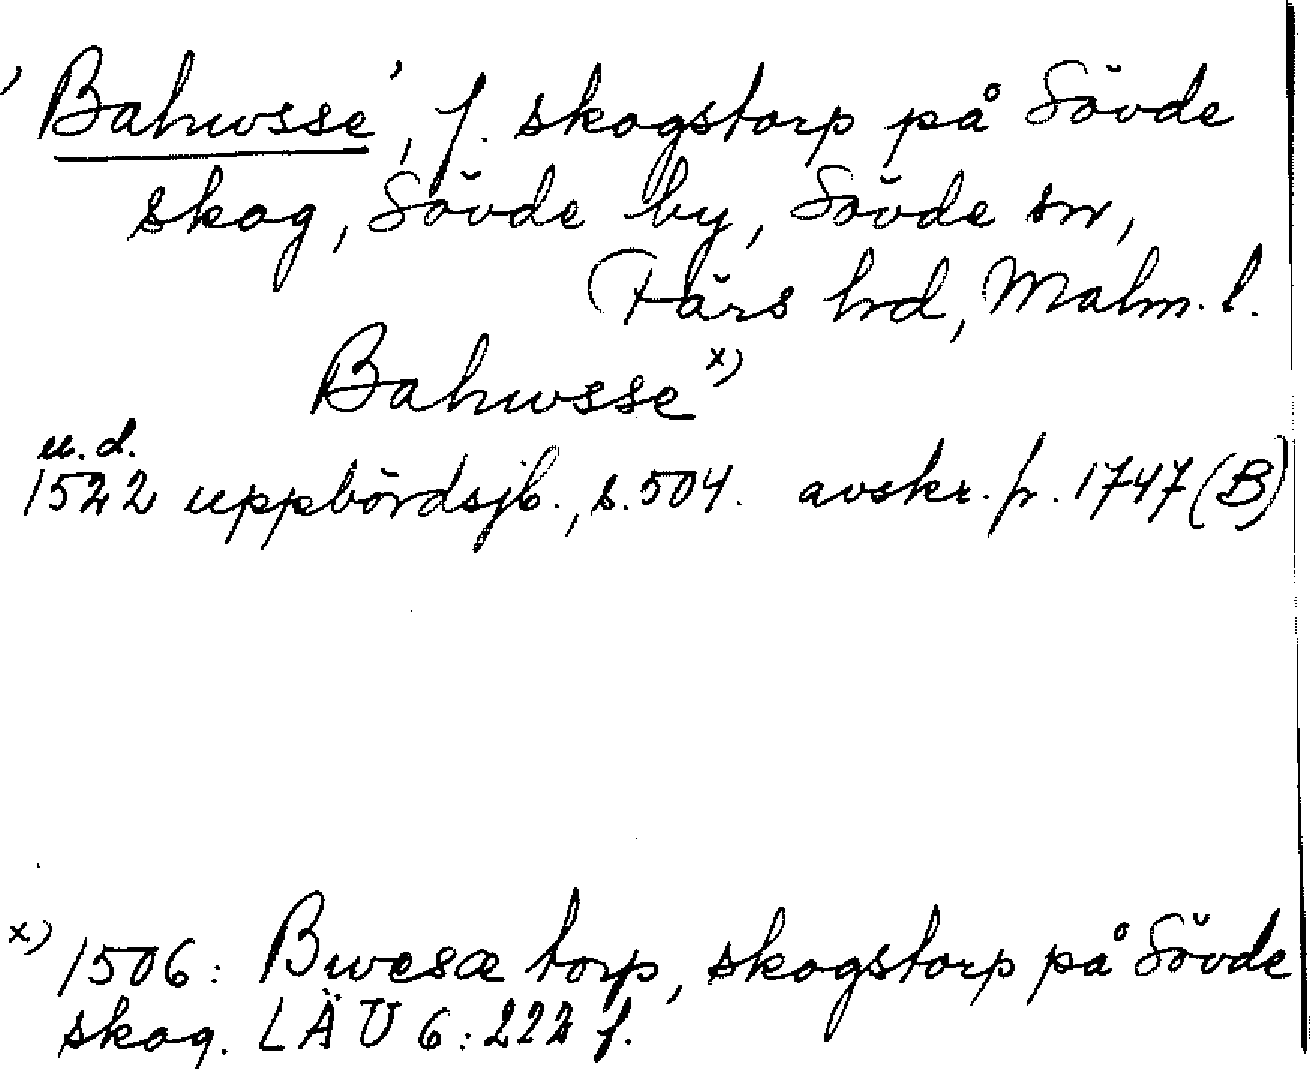 'Bahwsse', f. skogstorp på Sövde
skog, Sövde by, Sövde sn,
Färs hd, Malm. l.
Bahwsse x)
u. d.
1522 uppbördsjb., s. 504. avskr. fr. 1747 (B)
x) 1506: Bwesæ torp, skogstorp på Sövde
skog. LÄU 6: 222 f.